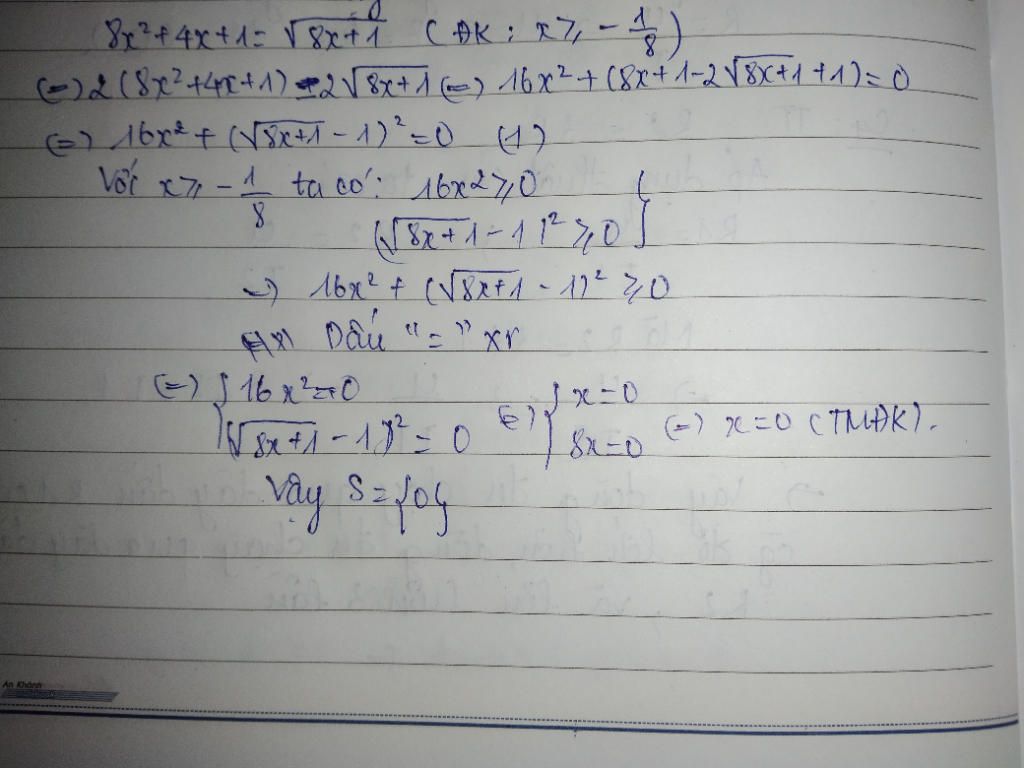 8x²+4x+1=√8x+1 (ĐK: x≥-1/8)
(=) 2(8x²+4x+1)=2√8x+1 (=) 16x²+(8x+1-2√8x+1+1)=0
(=) 16x²+(√8x+1-1)²=0 (1)
Với x≥-1/8 ta có: 16x2≥0
(√8x+1-1)²≥0 }
→ 16x²+(√8x+1-1)²≥0
Dấu "=" xr
(=) { 16x²=0
(√8x+1-1)²=0 (=) { x=0
8x=0 (=) x=0 (TMĐK).
Vậy S={0}
An Khánh